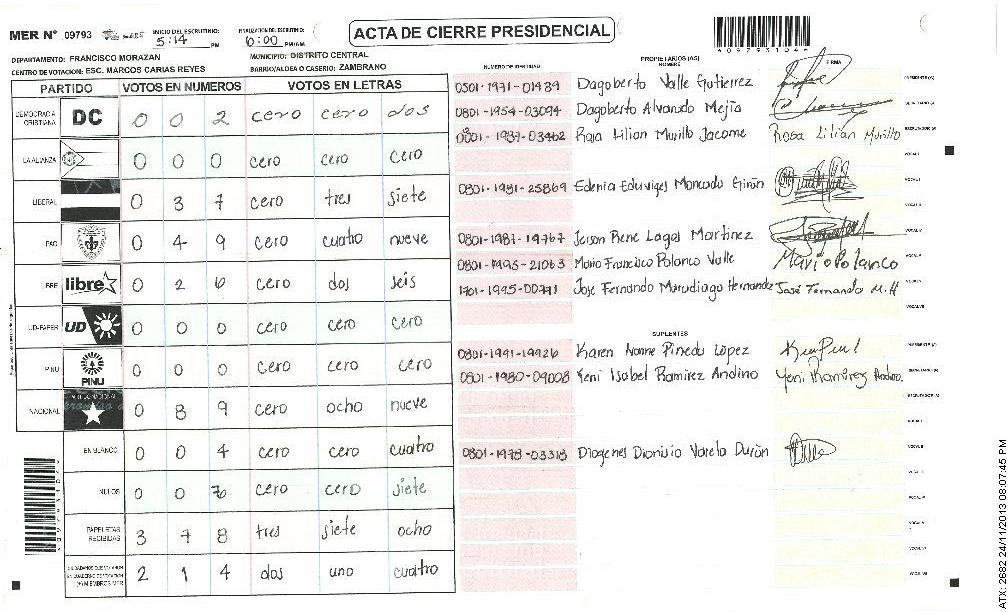 MER N° 09793
INICIO DEL ESCRUTINIO:
5:14 PM
FINALIZACION DEL ESCRUTINIO:
6:00 PM/AM
ACTA DE CIERRE PRESIDENCIAL
4097931044
DEPARTAMENTO: FRANCISCO MORAZAN
MUNICIPIO: DISTRITO CENTRAL
CENTRO DE VOTACION: ESC. MARCOS CARIAS REYES
BARRIO/ALDEA O CASERIO: ZAMBRANO
PARTIDO VOTOS EN NUMEROS VOTOS EN LETRAS
DEMOCRACIA CRISTIANA DC 0 0 2 cero cero dos
LA ALIANZA 0 0 0 cero cero cero
LIBERAL 0 3 7 cero tres siete
PAC 0 4 9 cero cuatro nueve
libre 0 2 6 cero dos seis
UD-FAPER UD 0 0 0 cero cero cero
PINU PINU 0 0 0 cero cero cero
NACIONAL 0 8 9 cero ocho nueve
EN BLANCO 0 0 4 cero cero cuatro
NULOS 0 0 7 cero cero siete
PAPELETAS RECIBIDAS 3 7 8 tres siete ocho
2 1 4 dos uno cuatro
NUMERO DE IDENTIDAD
PROPIETARIOS (AS)
NOMBRE
FIRMA
0501-1971-01489 Dagoberto Valle Gutierrez PRESIDENTE (A)
0801-1954-03094 Dagoberto Alvarado Mejia SECRETARIO (A)
0801-1937-03462 Rosa Lilian Murillo Jacome Rosa Lilian Murillo ESCRUTADOR (A)
VOCAL I
0801-1981-25869 Edenia Eduviges Moncada Girón VOCAL II
VOCAL III
0801-1987-19767 Jerson Rene Lagos Martinez VOCAL IV
0801-1995-21063 Mario Francisco Polanco Valle Mario Polanco VOCAL V
1701-1995-00771 Jose Fernando Marudiaga Hernandez José Fernando M. H VOCAL VI
VOCAL VII
SUPLENTES
0801-1991-19926 Karen Ivonne Pinedo López PRESIDENTE (A)
0801-1980-09008 Yeni Isabel Ramirez Andino Yeni Ramirez Andino. SECRETARIO (A)
ESCRUTADOR (A)
VOCAL I
0801-1978-03318 Diogenes Dionisio Varela Durón VOCAL II
VOCAL III
VOCAL IV
VOCAL V
VOCAL VI
VOCAL VII
ATX: 2682 24/11/2013 08:07:45 PM